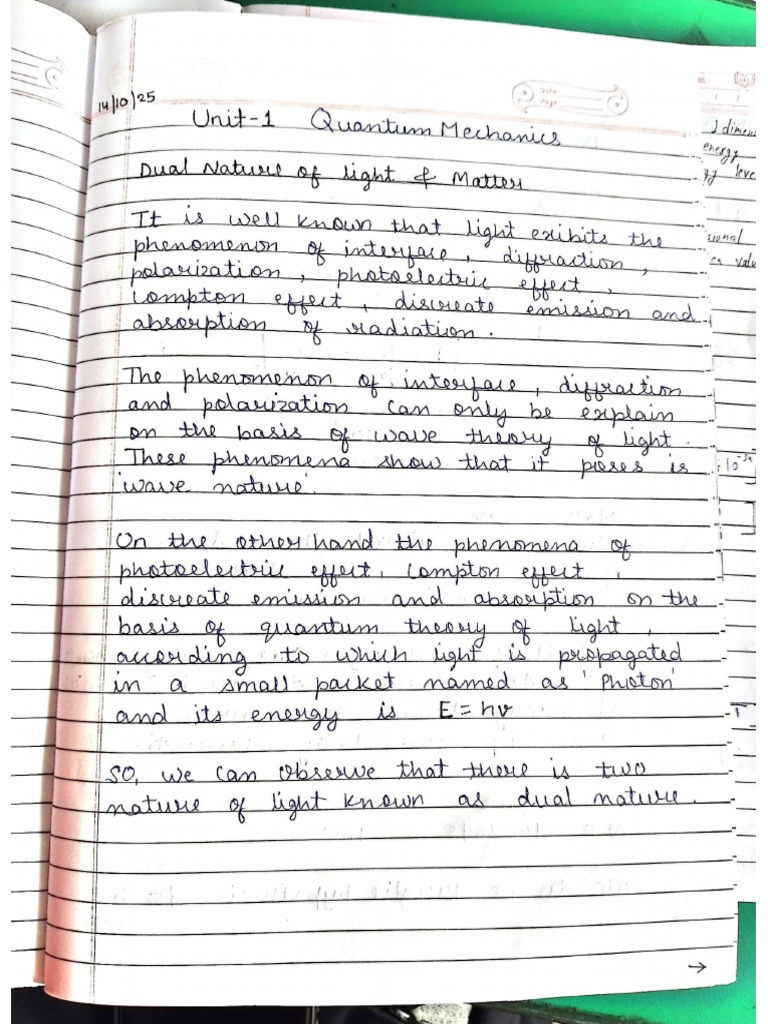 14/10/25
Unit-1 Quantum Mechanics
Dual Nature of light & Matter
It is well known that light exibits the
phenomenon of interface, diffraction,
polarization, photoelectric effect,
compton effect, discreate emission and
absorption of radiation.
The phenomenon of interface, diffraction
and polarization can only be explain
on the basis of wave theory of light.
These phenomena show that it poses is
'wave nature'.
On the other hand the phenomena of
photoelectric effect, compton effect,
discreate emission and absorption on the
basis of quantum theory of light,
according to which light is propagated
in a small packet named as 'Photon'
and its energy is E = hν
So, we can observe that there is two
nature of light known as dual nature.
→
energy
10⁻³⁴